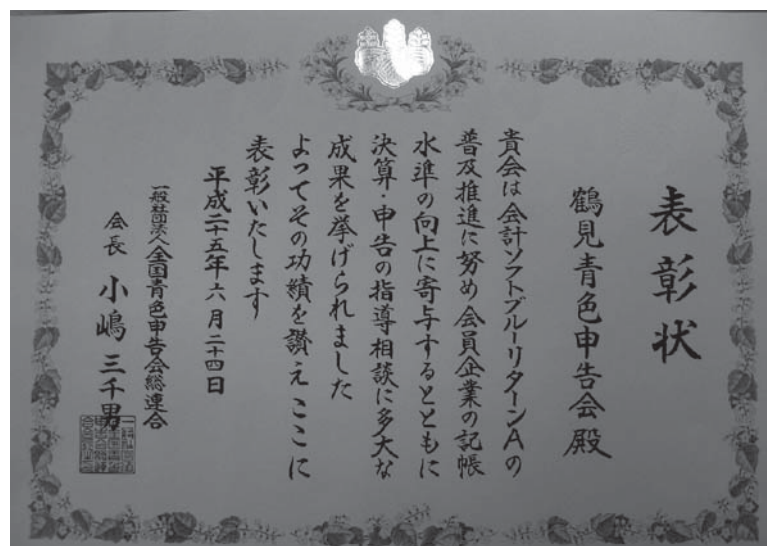 表彰状
鶴見青色申告会殿
貴会は会計ソフトブルーリターンAの
普及推進に努め会員企業の記帳
水準の向上に寄与するとともに
決算・申告の指導相談に多大な
成果を挙げられました
よってその功績を讃えここに
表彰いたします
平成二十五年六月二十四日
一般社団法人全国青色申告会総連合
会長 小嶋三千男